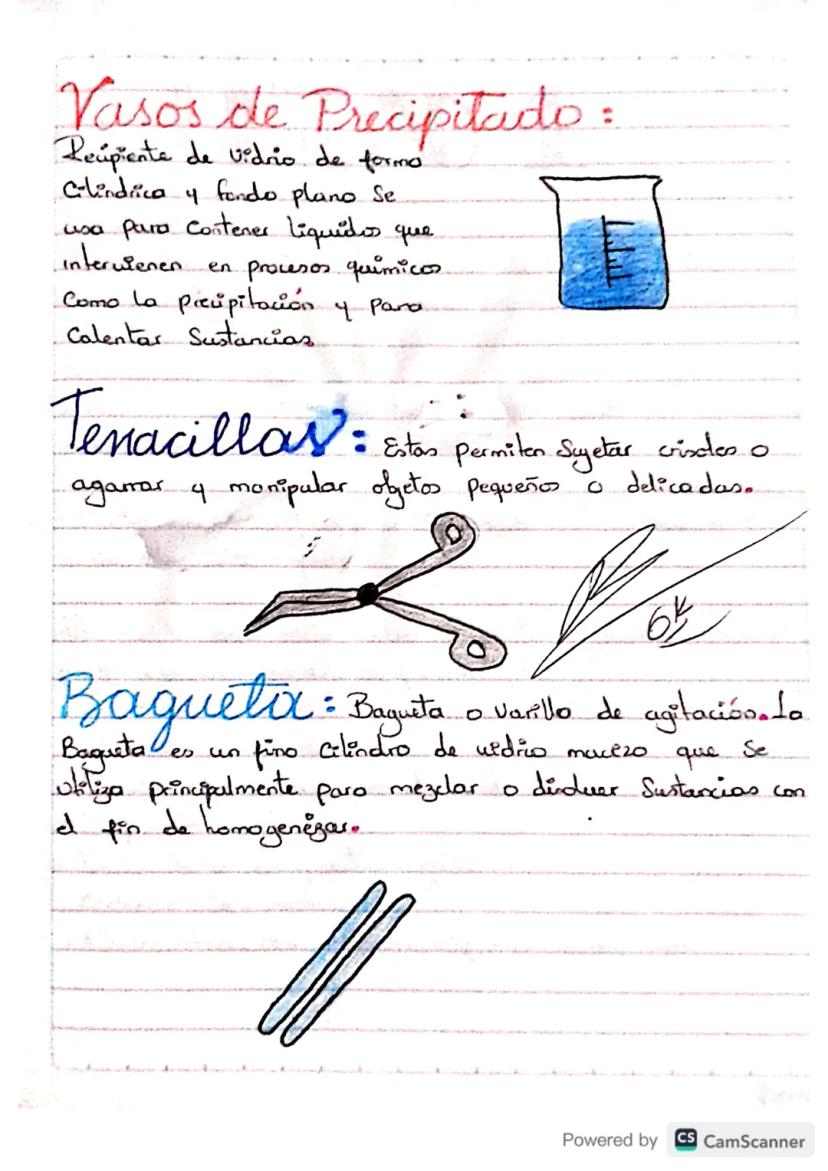 Vasos de Precipitado:
Recipiente de vidrio de forma
Cilíndrica y fondo plano Se
usa para Contener liquidos que
intervienen en procesos químicos
Como la precipitación y para
Calentar Sustancias.
Tenacillas: Estas permiten Sujetar crisoles o
agarrar y manipular objetos pequeños o delicadas.
6
Bagueta: Bagueta o varilla de agitación. La
Bagueta es un fino Cilindro de vidrio macizo que Se
utiliza principalmente para mezclar o disolver Sustancias con
el fin de homogenizar.
Powered by CS CamScanner